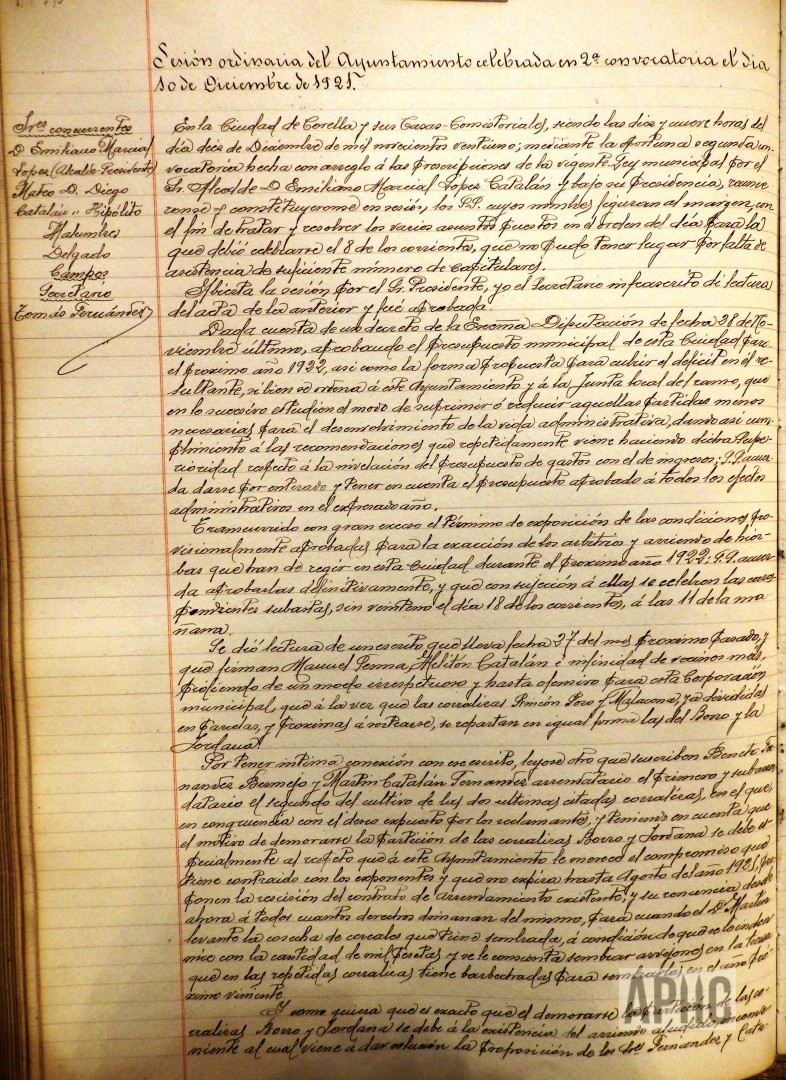 Sesión ordinaria del Ayuntamiento celebrada en 2ª convocatoria el dia
10 de Diciembre de 1921.
Sres concurrentes
D Emiliano Marcial
Lopez (Alcalde-Presidente)
Mateo D. Diego
Catalán " Hipólito
Malumbres
Delgado
Campos
Secretario
Tomás Fernández
En la Ciudad de Corella y sus Casas-Consistoriales, siendo las diez y nueve horas del
día diez de Diciembre de mil novecientos veintiuno; mediante la oportuna segunda con-
vocatoria hecha con arreglo á las prescripciones de la vigente Ley municipal por el
Sr. Alcalde D Emiliano Marcial Lopez Catalán y bajo su Presidencia, reunie-
ronse y constituyeronse en sesión, los S.S. cuyos nombres figuran al margen, con
el fin de tratar y resolver los varios asuntos puestos en el orden del día para la
que debió celebrarse el 8 de los corrientes, que no pudo tener lugar por falta de
asistencia de suficiente número de capitulares.
Abierta la sesión por el Sr. Presidente, yo el Secretario infrascrito di lectura
del acta de la anterior y fué aprobada.
Dada cuenta de un decreto de la Excma Diputación de fecha 28 de No-
viembre último, aprobando el presupuesto municipal de esta Ciudad para
el próximo año 1922, asi como la forma propuesta para cubrir el deficit en él re-
sultante, si bien se ordena á este Ayuntamiento y á la Junta local del ramo, que
en lo sucesivo estudien el modo de suprimir ó reducir aquellas partidas menos
necesarias para el desenvolvimiento de la vida administrativa, dando asi cum-
plimiento á las recomendaciones que repetidamente viene haciendo dicha Supe-
rioridad respecto á la nivelación del presupuesto de gastos con el de ingresos; S.S. acuer-
da darse por enterado y tener en cuenta el presupuesto aprobado á todos los efectos
administrativos en el expresado año.
Transcurrido con gran exceso el término de exposición de las condiciones pro-
visionalmente aprobadas para la exacción de los arbitrios y arriendo de hier-
bas que han de regir en esta Ciudad durante el proximo año 1922; S.S. acuer-
da aprobarlas definitivamente, y que con sujeción á ellas se celebren las corres-
pondientes subastas, sin veinteno el día 18 de los corrientes, á las 11 de la ma-
ñana.
Se dió lectura de un escrito que lleva fecha 27 del mes proximo pasado, y
que firman Manuel Penna, Melitón Catalán é infinidad de vecinos más,
pidiendo de un modo irrespetuoso y hasta ofensivo para esta Corporación
municipal, que á la vez que las corralizas Rincón, Foro y Malacona, ya divididas
en parcelas, y proximas á sortearse, se repartan en igual forma las del Borro y la
Jordana.
Por tener intima conexión con ese escrito, leyose otro que suscriben Benito Fer-
nandez Bermejo y Martin Catalán Fernandez arrendatario el primero y subarren-
datario el segundo del cultivo de las dos ultimas citadas corralizas, en el que
en congruencia con el deseo expuesto por los reclamantes, y teniendo en cuenta que
el motivo de demorarse la partición de las corralizas Borro y Jordana se debe es-
pecialmente al respeto que á este Ayuntamiento le merece el compromiso que
tiene contraido con los exponentes y que no expira hasta Agosto del año 1925, pro-
ponen la rescisión del contrato de arrendamiento existente, y su renuncia desde
ahora á todos cuantos derechos dimanan del mismo, para cuando el D Martin
levante la cosecha de cereales que tiene sembrada, á condición de que se le indem-
nice con la cantidad de mil pesetas y se le consienta sembrar arvejones en la tierra
que en las repetidas corralizas tiene barbechadas para sembrarlas en el año pró-
ximo viniente.
Y como quiera que es exacto que el demorarse la partición de las co-
rralizas Borro y Jordana se debe á la existencia del arriendo aludido, inconve-
niente al cual viene á dar solución la proposición de los Sres Fernandez y Cata-